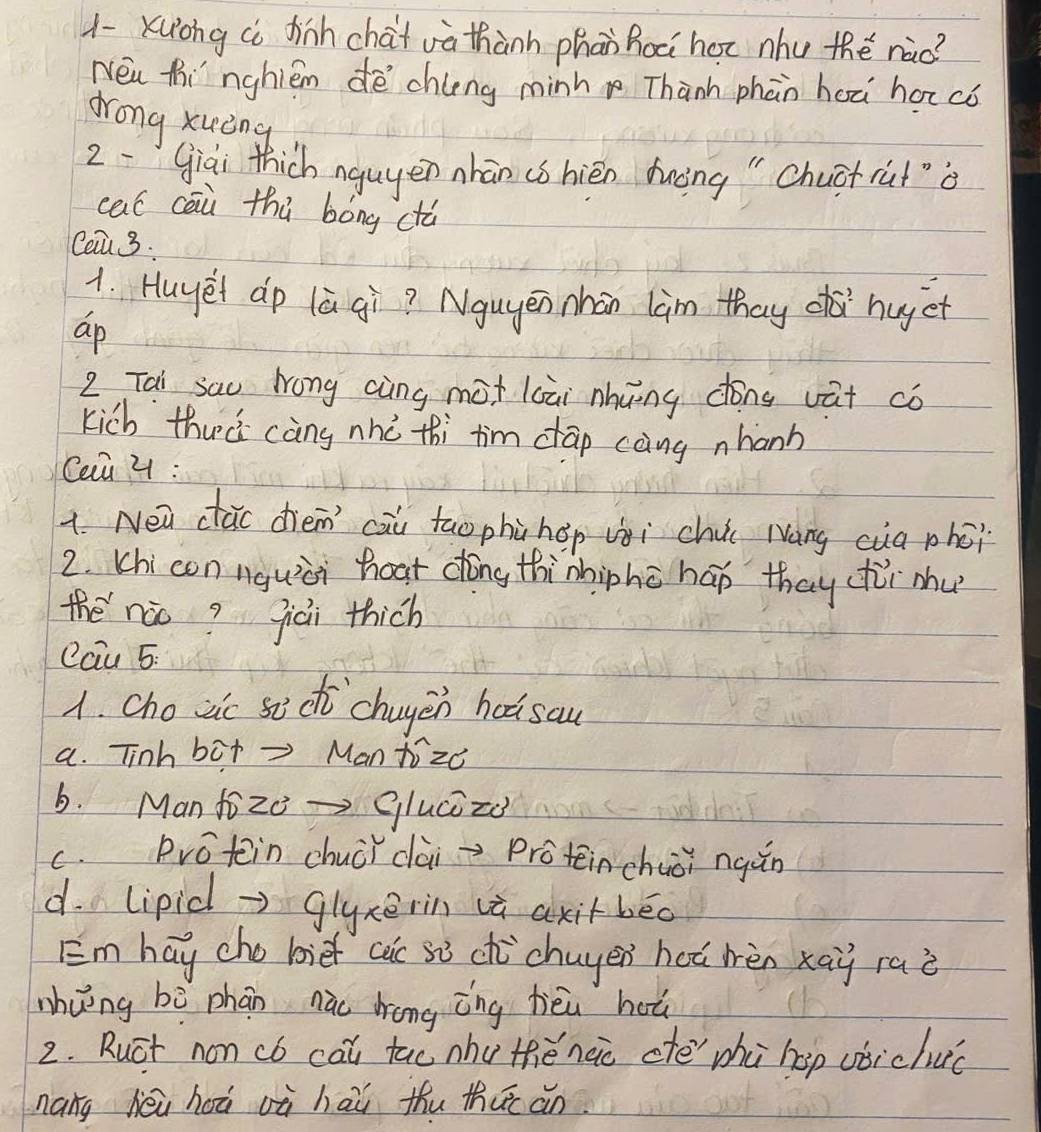 1- xương có tính chất và thành phần hoá học như thế nào?
Nêu thí nghiệm để chứng minh Thành phần hoá học có
trong xương
2 - Giải thích nguyên nhân có hiện tượng "Chuột rút" ở
các cầu thủ bóng đá
Câu 3:
1. Huyết áp là gì? Nguyên nhân làm thay đổi huyết
áp
2 Tại sao trong cùng một loài những động vật có
kích thước càng nhỏ thì tim đập càng nhanh
Câu 4:
1. Nêu đặc điểm cấu tạo phù hợp với chức năng của phổi
2. Khi con người hoạt động thì nhịp hô hấp thay đổi như
thế nào? giải thích
Câu 5:
1. Cho các sơ đồ chuyển hoá sau
a. Tinh bột → Mantôzơ
b. Mantôzơ → Glucôzơ
c. Prôtêin chuỗi dài → Prôtêin chuỗi ngắn
d. Lipid → Glyxêrin và axit béo
Em hãy cho biết các sơ đồ chuyển hoá trên xảy ra ở
những bộ phận nào trong ống tiêu hoá
2. Ruột non có cấu tạo như thế nào để phù hợp với chức
năng tiêu hoá và hấp thụ thức ăn.